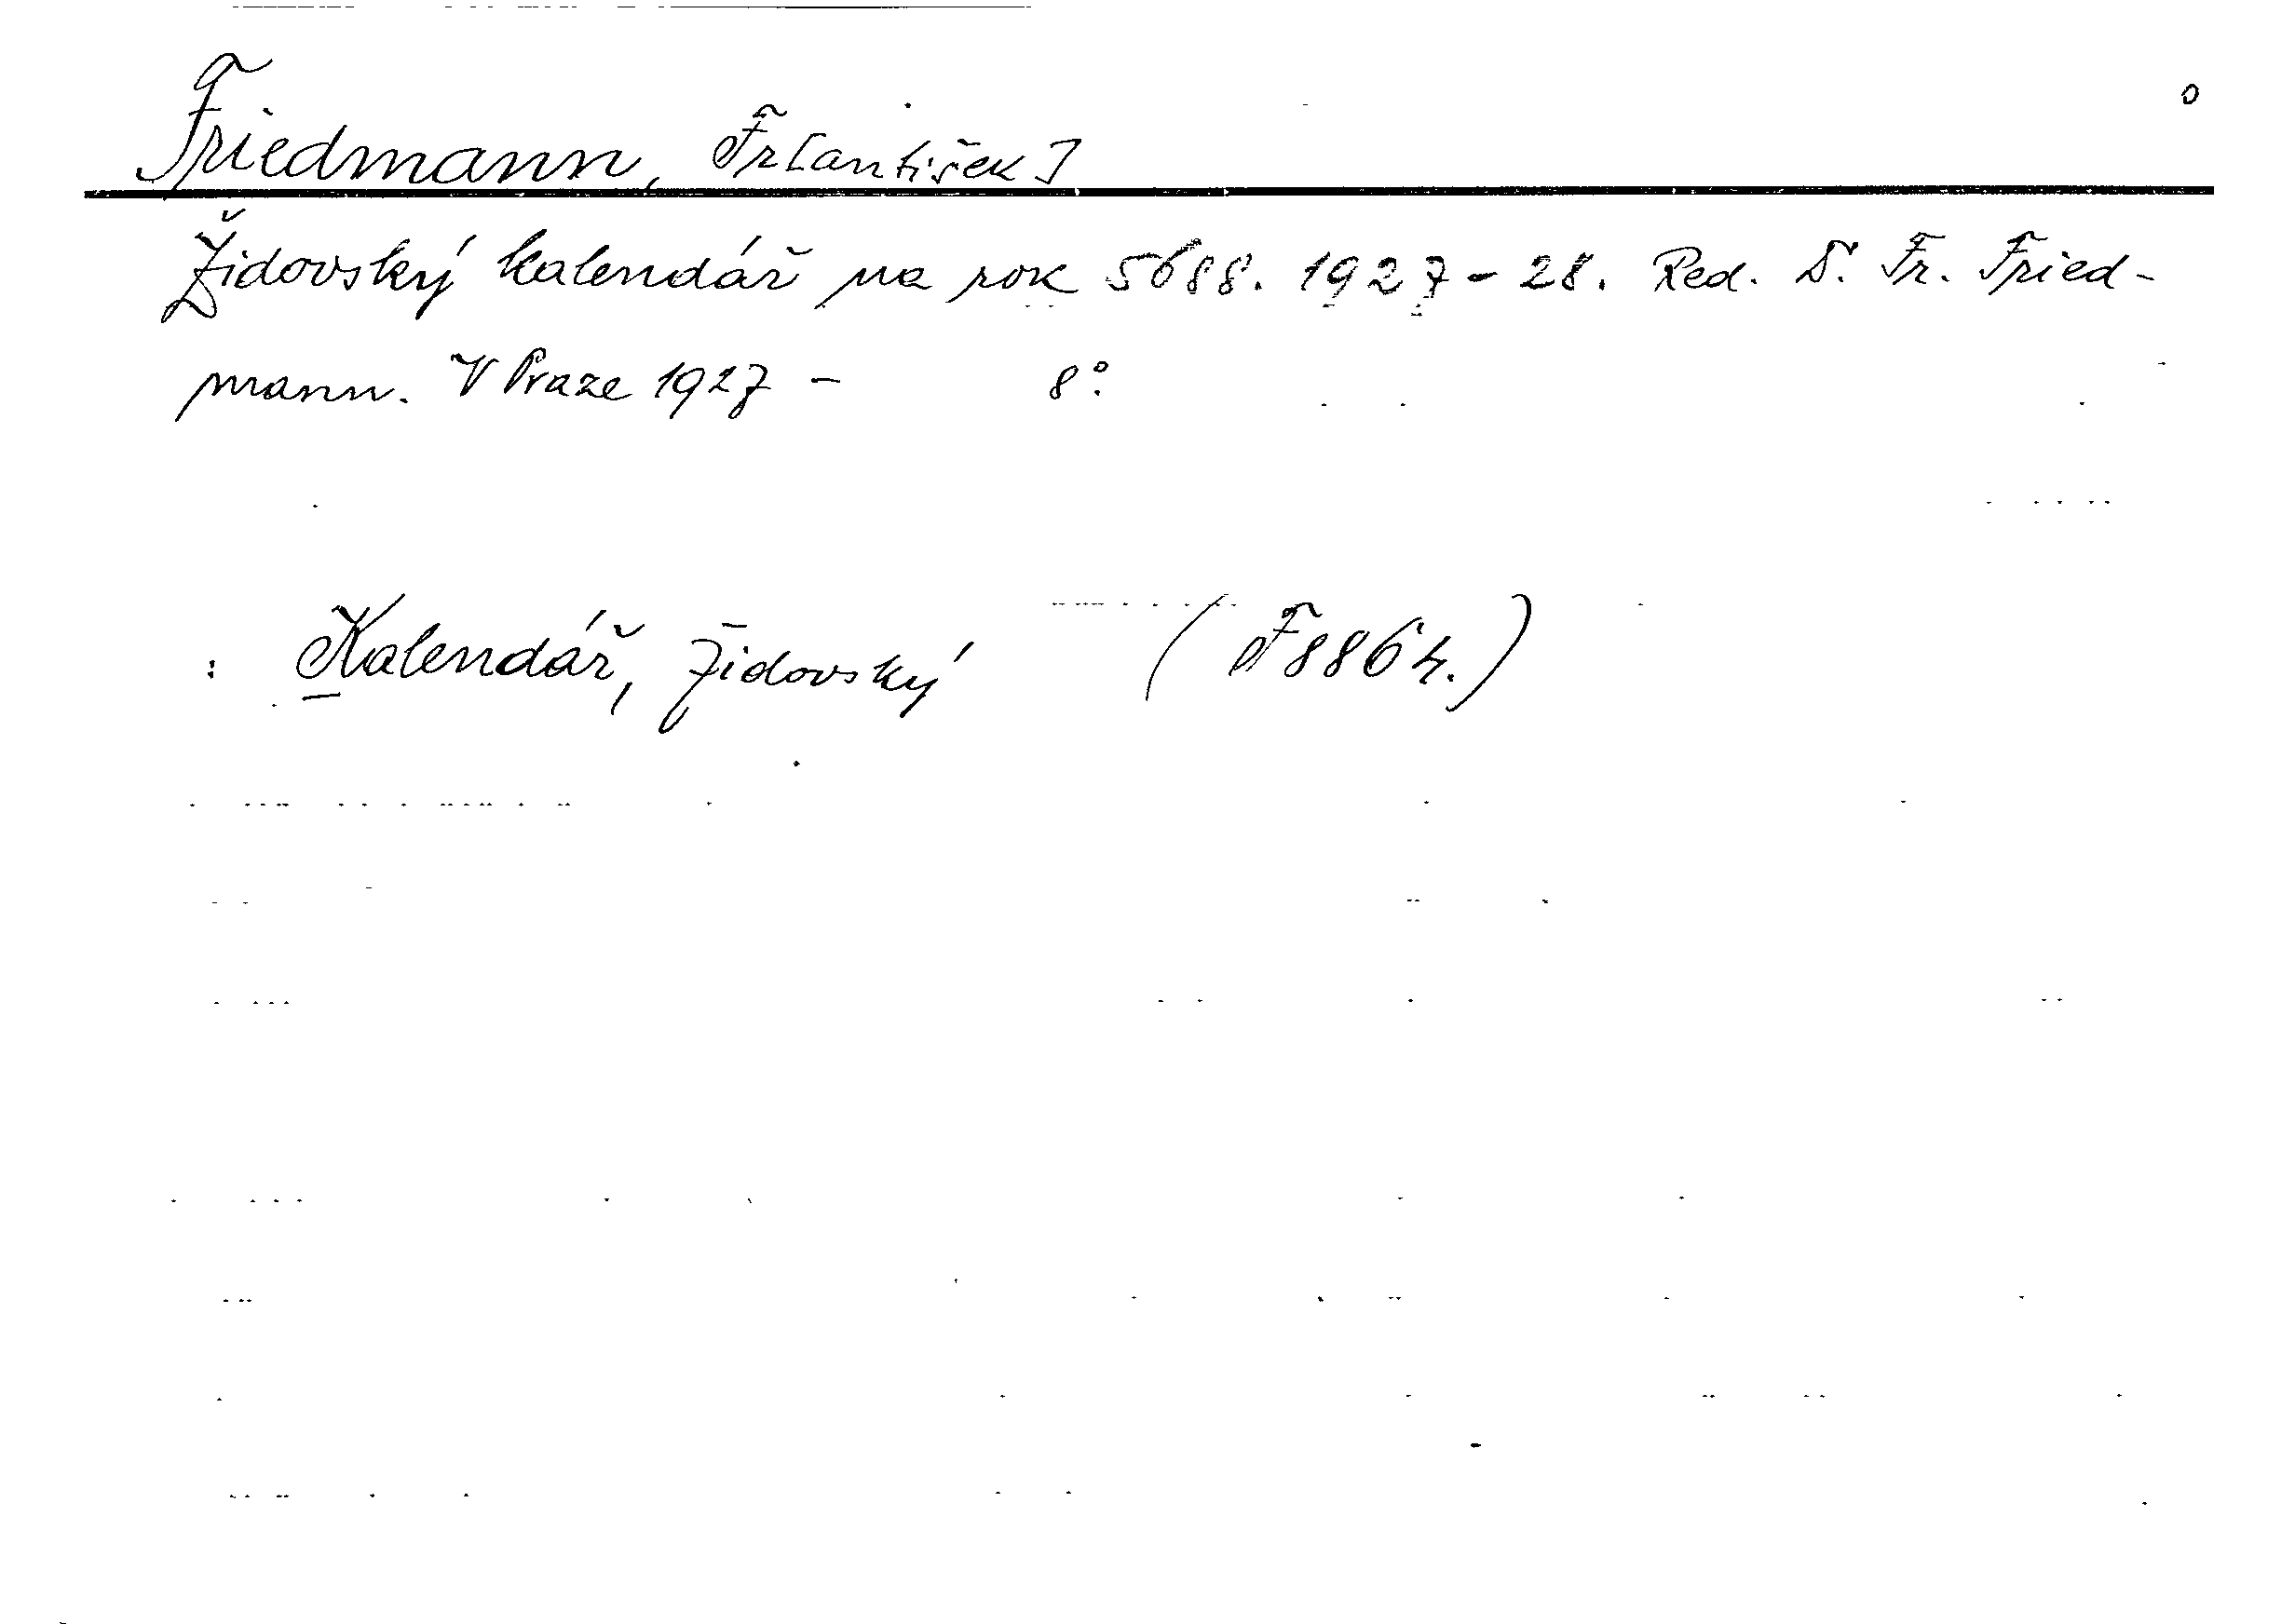 o
Friedmann, Fr[antišek]
Židovský kalendář na rok 5688. 1927-28. Red. Dr. Fr. Fried-
mann. V Praze 1927 - 8°.
: Kalendář, židovský (F 8864.)